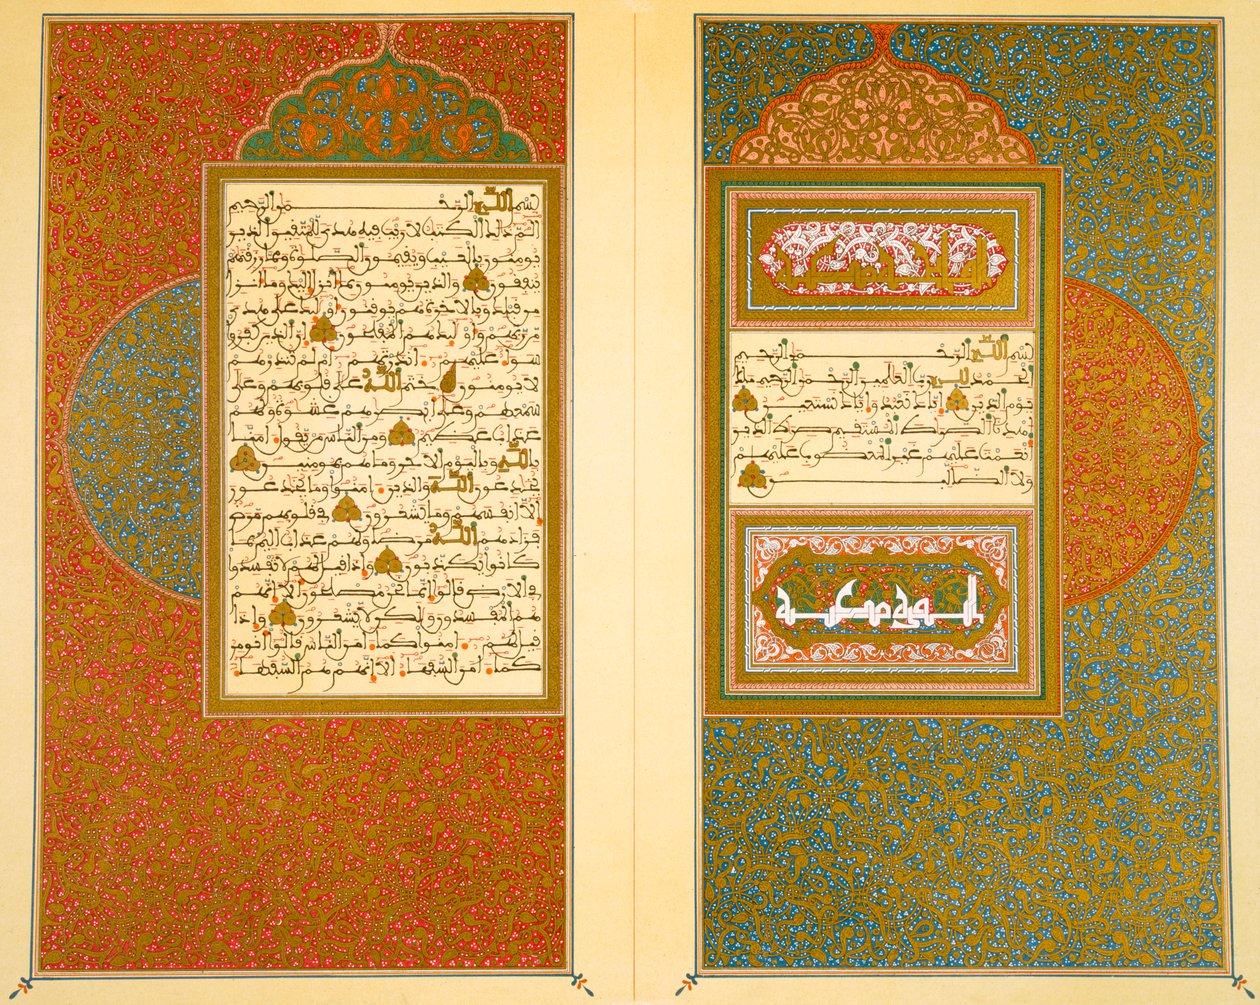 بسم الله الرحمن الرحيم
الحمد لله رب العالمين الرحمن الرحيم ملك
يوم الدين إياك نعبد وإياك نستعين
اهدنا الصراط المستقيم صراط الذين
أنعمت عليهم غير المغضوب عليهم
ولا الضالين
بسم الله الرحمن الرحيم
الم ذلك الكتب لا ريب فيه هدى للمتقين الذين
يومنون بالغيب ويقيمون الصلوة ومما رزقنهم
ينفقون والذين يومنون بما أنزل إليك وما أنزل
من قبلك وبالاخرة هم يوقنون أولئك على هدى
من ربهم وأولئك هم المفلحون إن الذين كفروا
سواء عليهم ءانذرتهم أم لم تنذرهم
لا يومنون ختم الله على قلوبهم وعلى
سمعهم وعلى أبصرهم غشوة ولهم
عذاب عظيم ومن الناس من يقول امنا
بالله وباليوم الاخر وما هم بمومنين
يخدعون الله والذين امنوا وما يخدعون
إلا أنفسهم وما يشعرون في قلوبهم مرض
فزادهم الله مرضا ولهم عذاب اليم بما
كانوا يكذبون وإذا قيل لهم لا تفسدوا
في الارض قالوا إنما نحن مصلحون ألا إنهم
هم المفسدون ولكن لا يشعرون وإذا
قيل لهم امنوا كما امن الناس قالوا أنومن
كما امن السفها ألا إنهم هم السفها